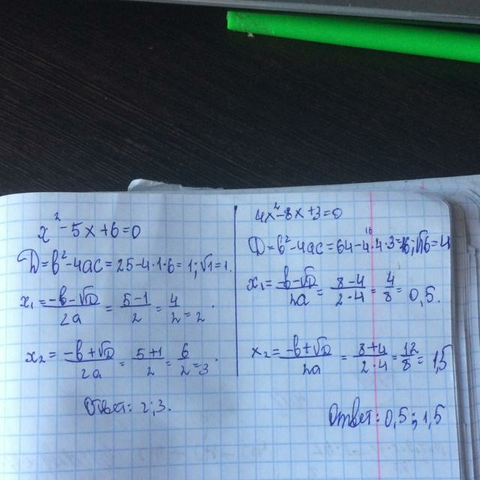 x²-5x+6=0
D=b²-4ac=25-4·1·6=1; √1=1.
x₁=(-b-√D)/2a=(5-1)/2=4/2=2.
x₂=(-b+√D)/2a=(5+1)/2=6/2=3.
Ответ: 2; 3.
4x²-8x+3=0
D=b²-4ac=64-4·4·3=16; √16=4
x₁=(-b-√D)/2a=(8-4)/(2·4)=4/8=0,5.
x₂=(-b+√D)/2a=(8+4)/(2·4)=12/8=1,5
Ответ: 0,5; 1,5